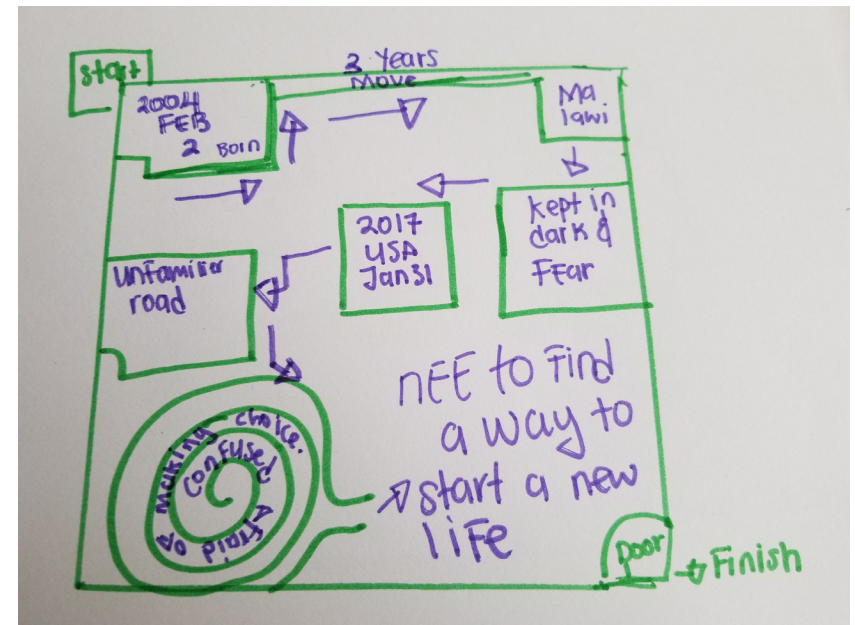 start
2004
FEB
2 Born
3 Years
Move
Ma
lawi
kept in
dark &
FEar
2017
USA
Jan31
unfamilier
road
Afraid of making choice.
confused
nEE to Find
a way to
start a new
life
Door
Finish